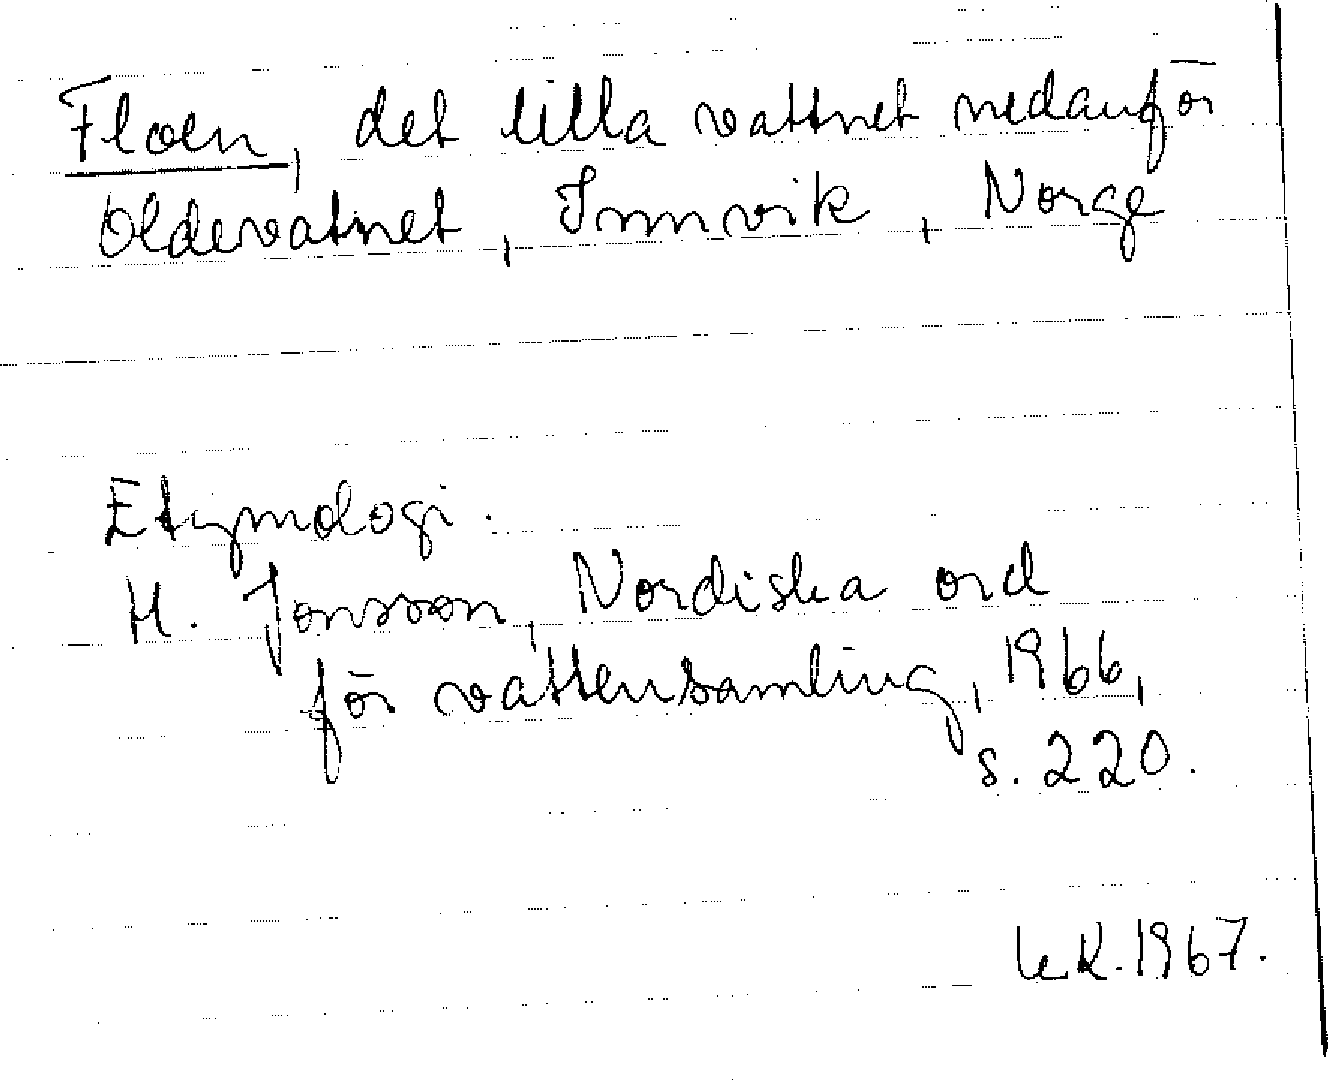 Floen, det lilla vattnet nedanför
Oldevatnet, Innvik, Norge
Etymologi.
H. Jonsson, Nordiska ord
för vattensamling, 1966,
s. 220.
1967.